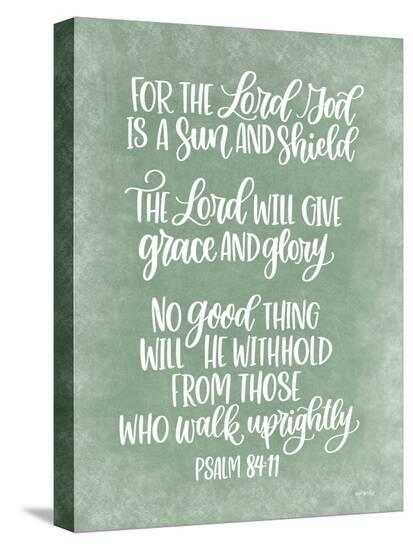 FOR THE Lord God
IS A Sun AND Shield
THE Lord WILL GIVE
grace AND glory
NO good THING
WILL HE WITHHOLD
FROM THOSE
WHO walk uprightly
PSALM 84:11